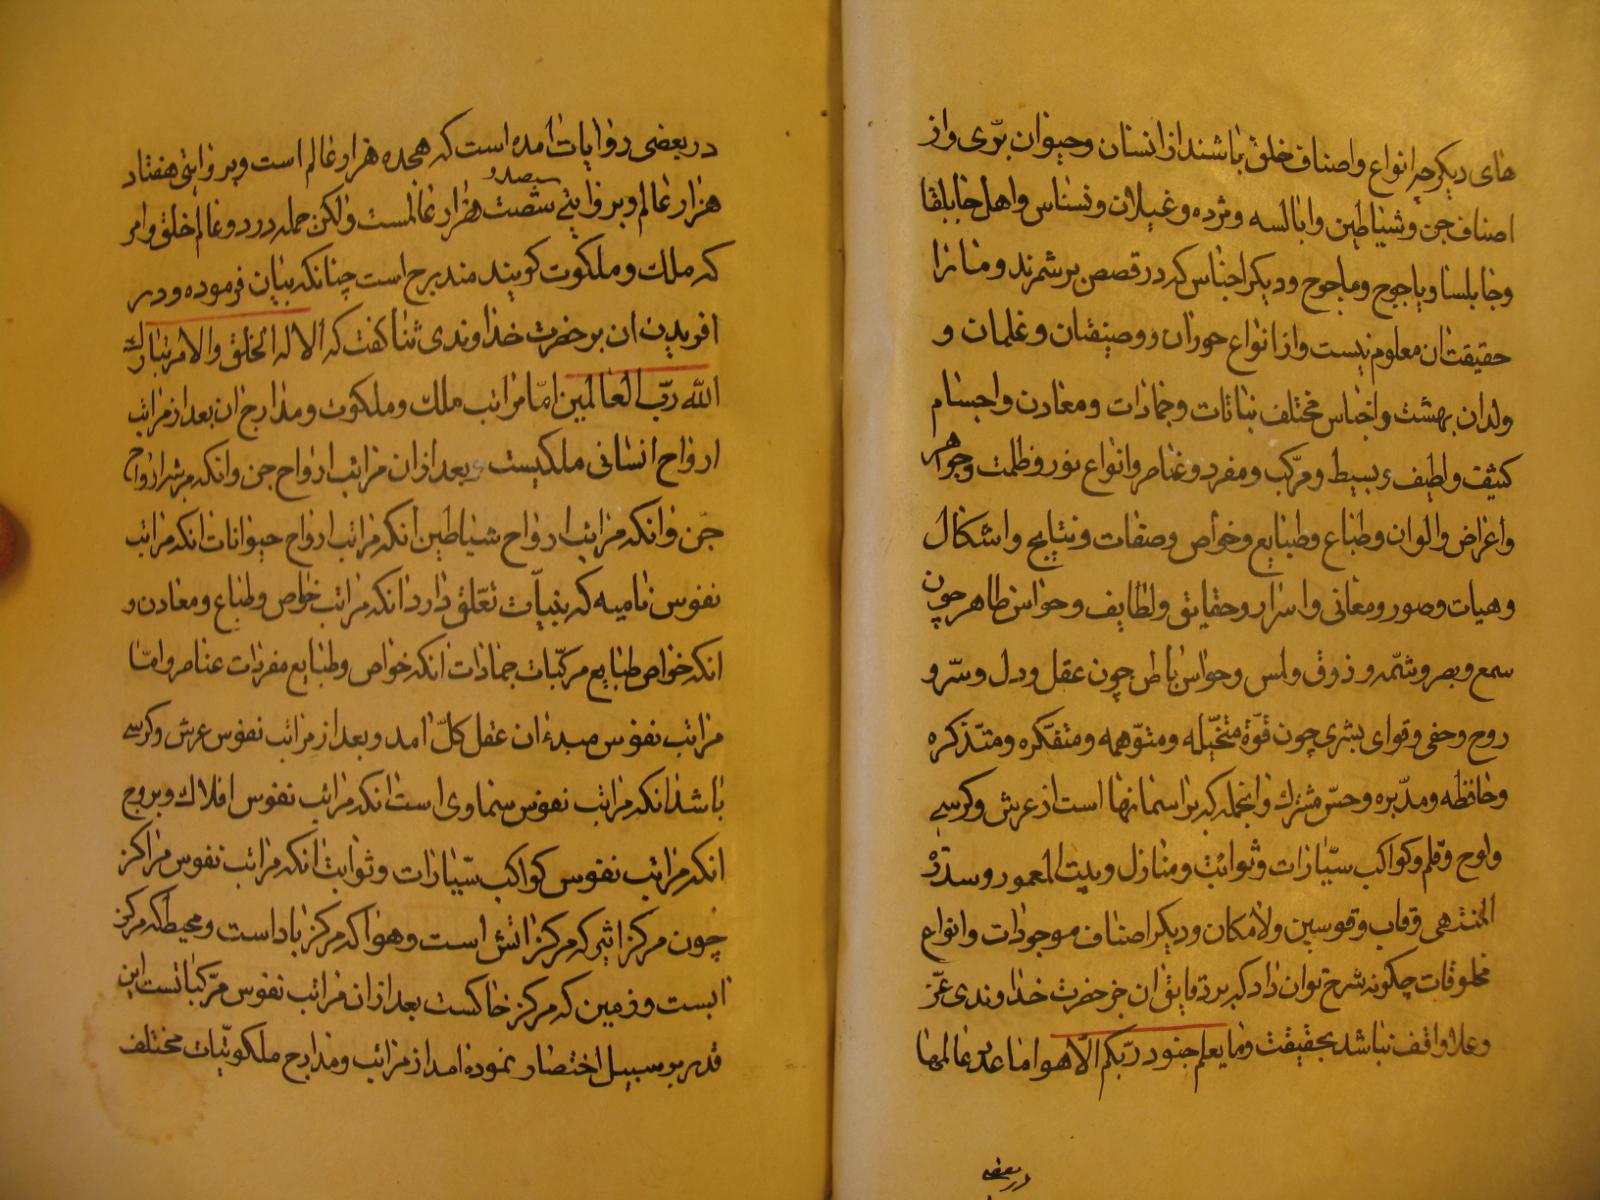 هاى ديكر چه انواع و اصناف خلق باشند از انسان و حيوان برّى و از
اصناف جن و شياطين و ابالسه و مرده و غيلان و نسناس و اهل جابلقا
و جابلسا و ياجوج و ماجوج و ديكر اجناس كه در قصص برشمرند و ما را
حقيقت ان معلوم نيست و از انواع حوران و وصيفتان و غلمان و
ولدان بهشت و اجناس مختلف نباتات و جمادات و معادن و اجسام
كثيف و لطيف و بسيط و مركّب و مفرد و عناصر و انواع نور و ظلمت و جواهر
و اعراض و الوان و طباع و طبايع و خواص و صفات و نتايج و اشكال
و هيات و صور و معانى و اسرار و حقايق و لطايف و حواس ظاهر چون
سمع و بصر و شمّ و ذوق و لمس و حواس باطن چون عقل و دل و سرّ و
روح و خفى و قواى بشرى چون قوّة متخيّله و متوّهمه و متفكّره و متذكره
و حافظه و مدبّره و حسّ مشترك و انجمله كه بر اسمانها است از عرش و كرسى
و لوح و قلم و كواكب سيّارات و ثوابت و منازل و بيت المعمور و سدرة
المنتهى و قاب و قوسين و لامكان و ديكر اصناف موجودات و انواع
مخلوقات چكونه شرح توان داد كه بر دقايق ان جز حضرت خداوندى عزّ
و علا واقف نباشد بحقيقت وما يعلم جنود ربّكم الّا هو اما عدد عالمها
در بعضى
در بعضى روايات امده است كه هجده هزار عالم است و بر وايتى هفتاد
هزار عالم و بر وايتى سيصد و شصت هزار عالمست و لكن جمله در دو عالم خلق و امر
كه ملك و ملكوت كويند مندرج است چنانكه بيان فرموده و در
افريدن ان بر حضرت خداوندى ثنا كفت كه الا له الخلق والامر تبارك
الله ربّ العالمين امّا مراتب ملك و ملكوت و مدارج ان بعد از مراتب
ارواح انسانى ملكيست و بعد از ان مراتب ارواح جن و انكه مراتب ارواح
جن و انكه مراتب ارواح شياطين انكه مراتب ارواح حيوانات انكه مراتب
نفوس ناميه كه بنبات تعّلق دارد انكه مراتب خواص و طباع و معادن و
انكه خواص طبايع مركّبات جمادات انكه خواص و طبايع مفردات عناصر و امّا
مراتب نفوس مبدء ان عقل كلّ امد و بعد از مراتب نفوس عرش و كرسى
باشد انكه مراتب نفوس سماوى است انكه مراتب نفوس افلاك و بروج
انكه مراتب نفوس كواكب سيّارات و ثوابت انكه مراتب نفوس مراكز
چون مركز اثير كه مركز اتش است و هوا كه مركز باد است و محيط كه مركز
ابست و زمين كه مركز خاكست بعد از ان مراتب نفوس مرّكباتست اين
قدر بر سبيل اختصار نموده امد از مراتب و مدارج ملكوتيات مختلف